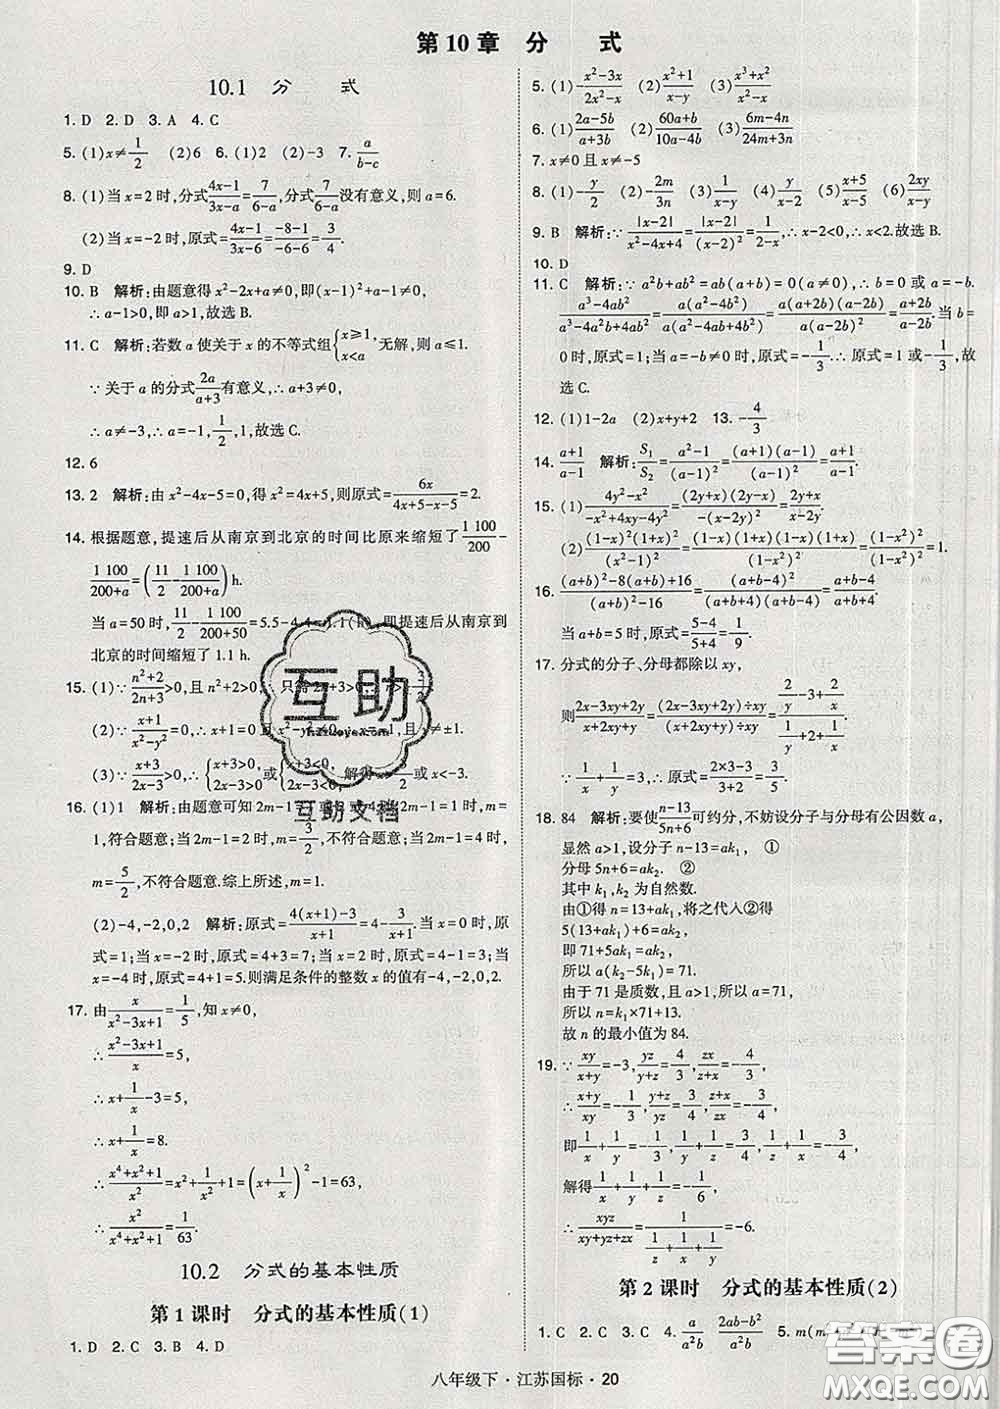 第10章 分 式
10.1 分 式
1. D 2. D 3. A 4. C
5. (1)x≠1/2 (2)6 6. (1)2 (2)-3 7. a/(b-c)
8. (1)当x=2时,分式(4x-1)/(3x-a)=7/(6-a),分式7/(6-a)没有意义,所以a=6.
(2)当x=-2时,原式=(4x-1)/(3x-6)=(-8-1)/(-6-6)=3/4.
9. D
10. B 解析:由题意得x²-2x+a≠0,即(x-1)²+a-1≠0,
∴a-1>0,即a>1,故选B.
11. C 解析:若数a使关于x的不等式组{x≥1, x<a},无解,则a≤1.
∵关于a的分式2a/(a+3)有意义,∴a+3≠0,
∴a≠-3,∴a=-1,1/2,1,故选C.
12. 6
13. 2 解析:由x²-4x-5=0,得x²=4x+5,则原式=6x/(4x+5-x-5)=2.
14. 根据题意,提速后从南京到北京的时间比原来缩短了1 100/200-
1 100/(200+a)=(11/2-1 100/(200+a)) h.
当a=50时,11/2-1 100/(200+50)=5.5-4.4=1.1(h),即提速后从南京到
北京的时间缩短了1.1 h.
15. (1)∵(n²+2)/(2n+3)>0,且n²+2>0,∴只需2n+3>0
(2)∵(x+1)/(x²-y²)=0,∴x+1=0且x²-y²≠0,∴x=-1,且y≠±1.
(3)∵(x+3)/(2x-3)>0,∴{x+3>0, 2x-3>0}或{x+3<0, 2x-3<0},解得x>3/2或x<-3.
16. (1)1 解析:由题意可知2m-1=1或2或4.当2m-1=1时,m=
1,符合题意;当2m-1=2时,m=3/2,不符合题意;当2m-1=4时,
m=5/2,不符合题意.综上所述,m=1.
(2)-4,-2,0,2 解析:原式=(4(x+1)-3)/(x+1)=4-3/(x+1).当x=0时,原
式=1;当x=-2时,原式=4+3=7;当x=2时,原式=4-1=3;当
x=-4时,原式=4+1=5.则满足条件的整数x的值有-4,-2,0,2.
17. 由x/(x²-3x+1)=1/5,知x≠0,
∴(x²-3x+1)/x=5,
∴x+1/x-3=5,
∴x+1/x=8.
∴(x⁴+x²+1)/x²=x²+1/x²+1=(x+1/x)²-1=63,
∴x²/(x⁴+x²+1)=1/63.
10.2 分式的基本性质
第1课时 分式的基本性质(1)
1. D 2. C 3. B 4. D
5. (1)-(x²-3x)/(2x²-x) (2)(x²+1)/(x-2) (3)(x³+x²)/(x²-x)
6. (1)(2a-5b)/(a+3b) (2)(60a+b)/(10a-4b) (3)(6m-4n)/(24m+3n)
7. x≠0且x≠-5
8. (1)-y/2 (2)-2m/3n (3)1/(x-y) (4)y/(x-2) (5)(x+5)/(x-5) (6)2xy/(x-y)
9. B 解析:∵|x-2|/(x²-4x+4)=|x-2|/(x-2)²=1/(2-x),∴x-2<0,∴x<2.故选B.
10. D
11. C 解析:∵a²b+ab²=ab(a+b)=0(a≠0),∴b=0或a=-b.
(a³-4ab²)/(a³-4a²b+4ab²)=a(a²-4b²)/a(a²-4ab+4b²)=a(a+2b)(a-2b)/a(a-2b)²=(a+2b)/(a-2b).当b=
0时,原式=1;当a=-b≠0时,原式=-1/3.∴原式=1或-1/3,故
选C.
12. (1)1-2a (2)x+y+2 13. -4/3
14. (a+1)/(a-1) 解析:S₁/S₂=(a²-1)/(a-1)²=(a+1)(a-1)/(a-1)²=(a+1)/(a-1).
15. (1)(4y²-x²)/(-x²+4xy-4y²)=(2y+x)(2y-x)/-(x-2y)²=(2y+x)/(x-2y).
(2)(1-x)²(1+x)²/(x²-1)²=(1-x)(1+x)(1-x)(1+x)/(1-x²)²=(1-x²)²/(1-x²)²=1.
16. ((a+b)²-8(a+b)+16)/((a+b)²-16)=(a+b-4)²/(a+b+4)(a+b-4)=(a+b-4)/(a+b+4).
当a+b=5时,原式=(5-4)/(5+4)=1/9.
17. 分式的分子、分母都除以xy,
则(2x-3xy+2y)/(x+2xy+y)=(2x-3xy+2y)÷xy/(x+2xy+y)÷xy=(2/y-3+2/x)/(1/y+2+1/x).
∵1/x+1/y=3,∴原式=(2×3-3)/(3+2)=3/5.
18. 84 解析:要使(n-13)/(5n+6)可约分,不妨设分子与分母有公因数a,
显然a>1,设分子n-13=ak₁, ①
分母5n+6=ak₂. ②
其中k₁,k₂为自然数.
由①得n=13+ak₁,将之代人②得
5(13+ak₁)+6=ak₂,
即71+5ak₁=ak₂,
所以a(k₂-5k₁)=71.
由于71是质数,且a>1,所以a=71,
所以n=k₁×71+13.
故n的最小值为84.
19. ∵xy/(x+y)=-3,yz/(y+z)=4/3,zx/(z+x)=-4/3,
∴(x+y)/xy=-1/3,(y+z)/yz=3/4,(z+x)/zx=-3/4,
即1/x+1/y=-1/3,1/y+1/z=3/4,1/z+1/x=-3/4,
解得1/x+1/y+1/z=-1/6,
∴xyz/(xy+yz+zx)=1/(1/x+1/y+1/z)=-6.
第2课时 分式的基本性质(2)
1. C 2. C 3. C 4. a/(a²b²) (2ab-b²)/(a²b²) 5. m(m
八年级下·江苏国标·20
互助
互助文档
答案圈
MXQE.COM